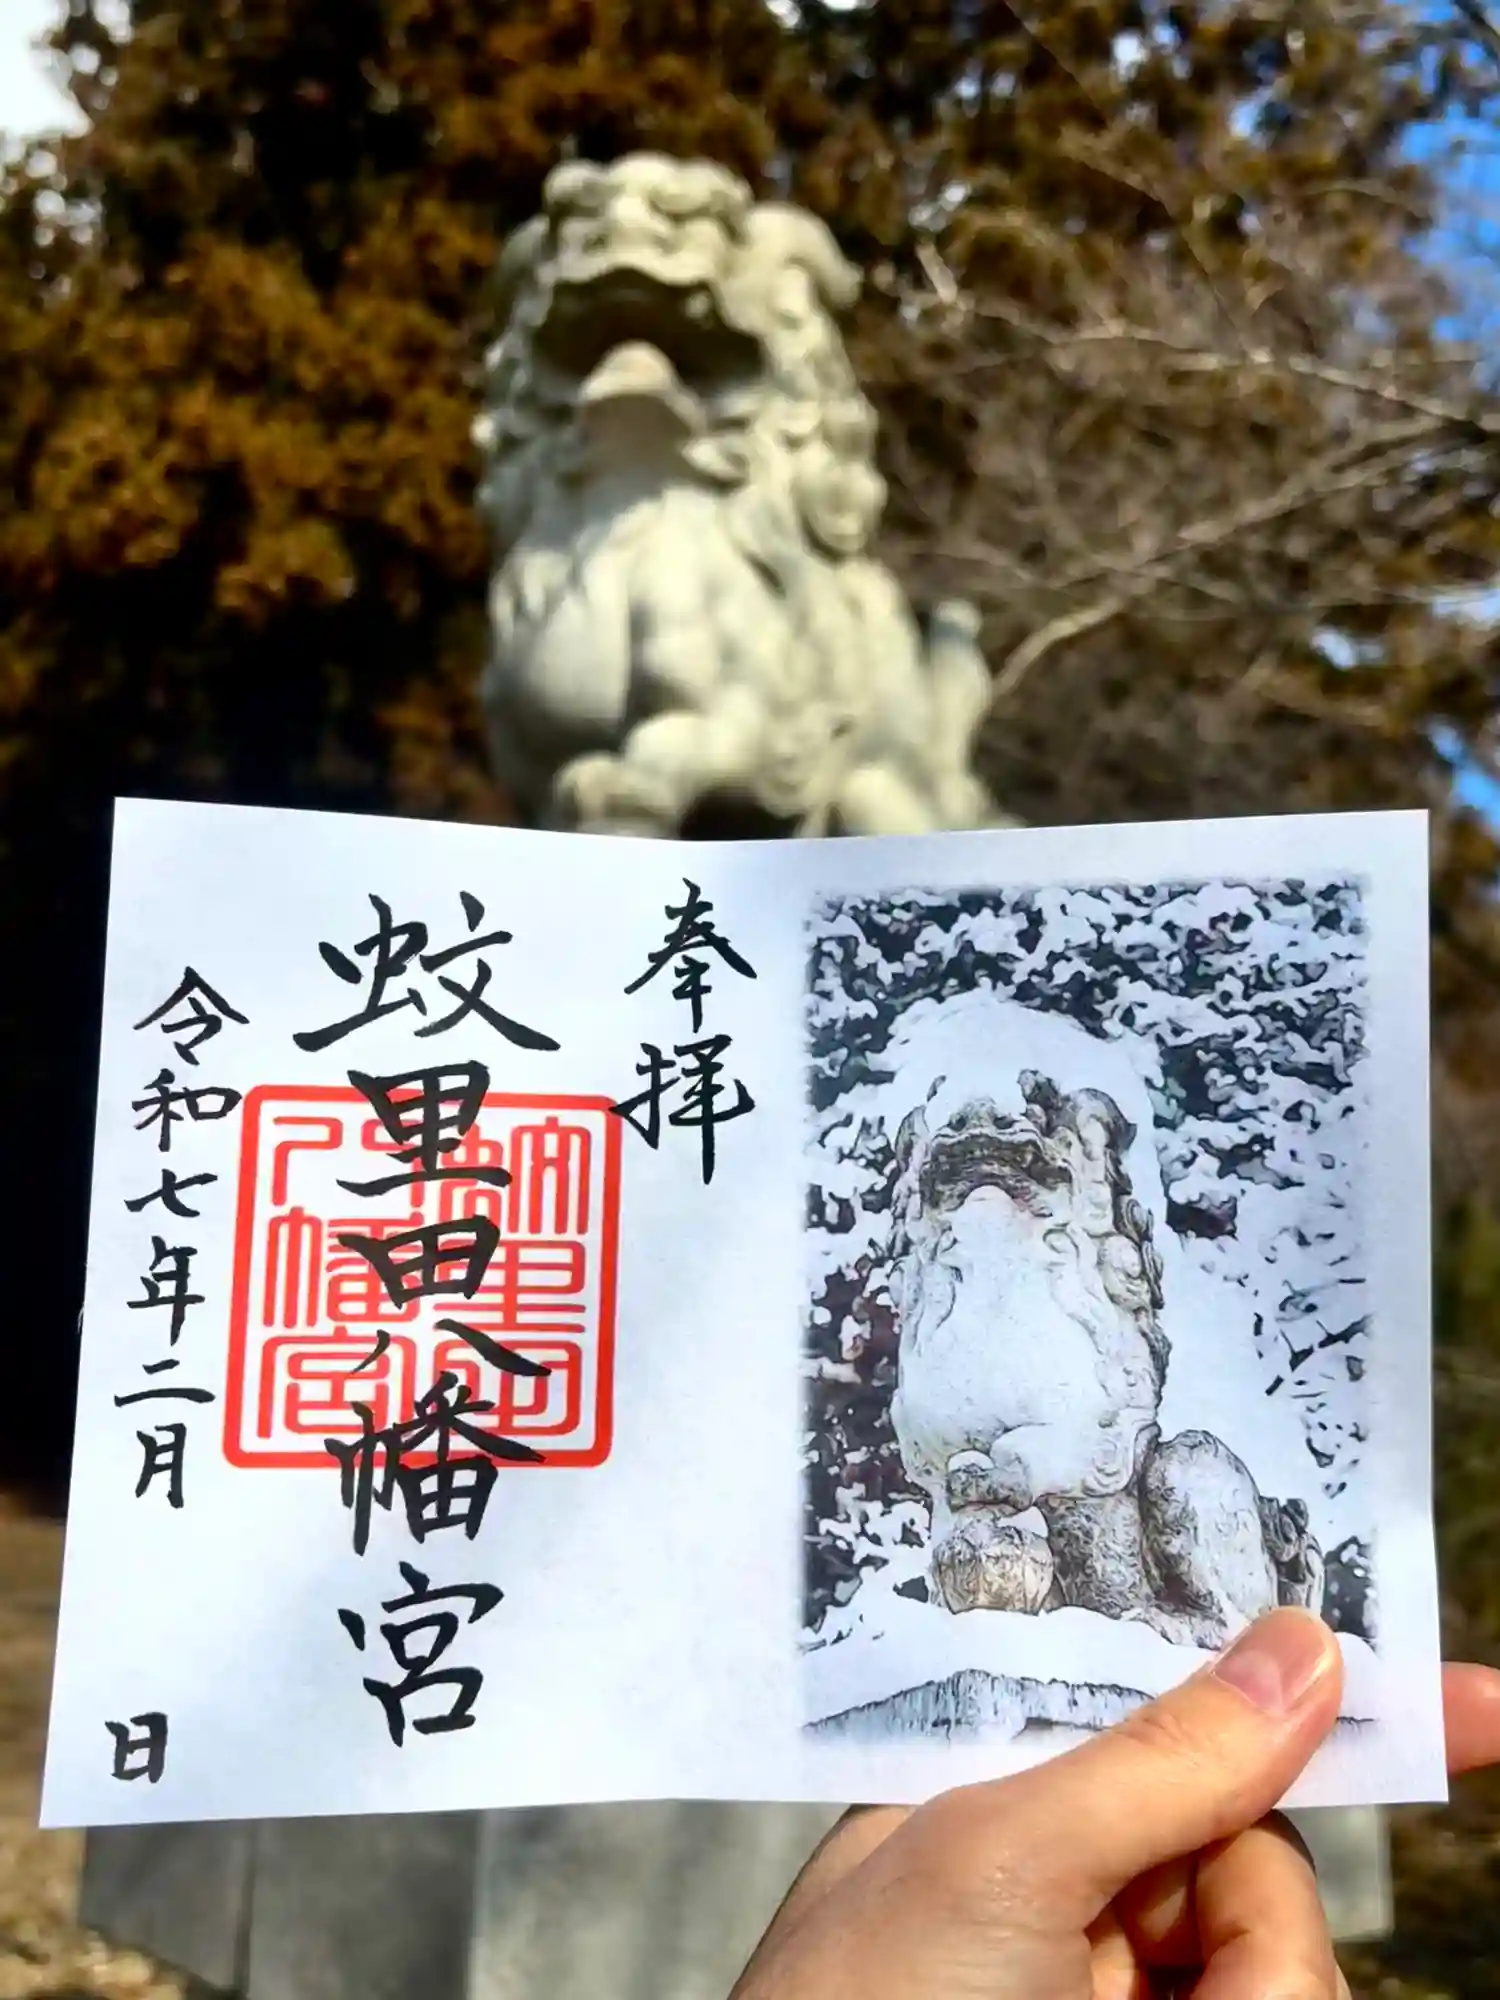 奉拝
蚊里田八幡宮
蚊里田
八幡宮
令和七年二月 日